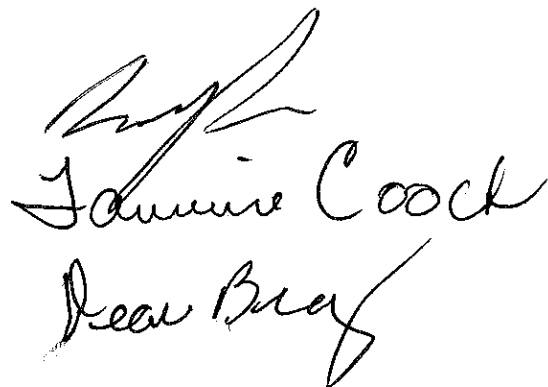 Tammie Cooch
Dean Bray